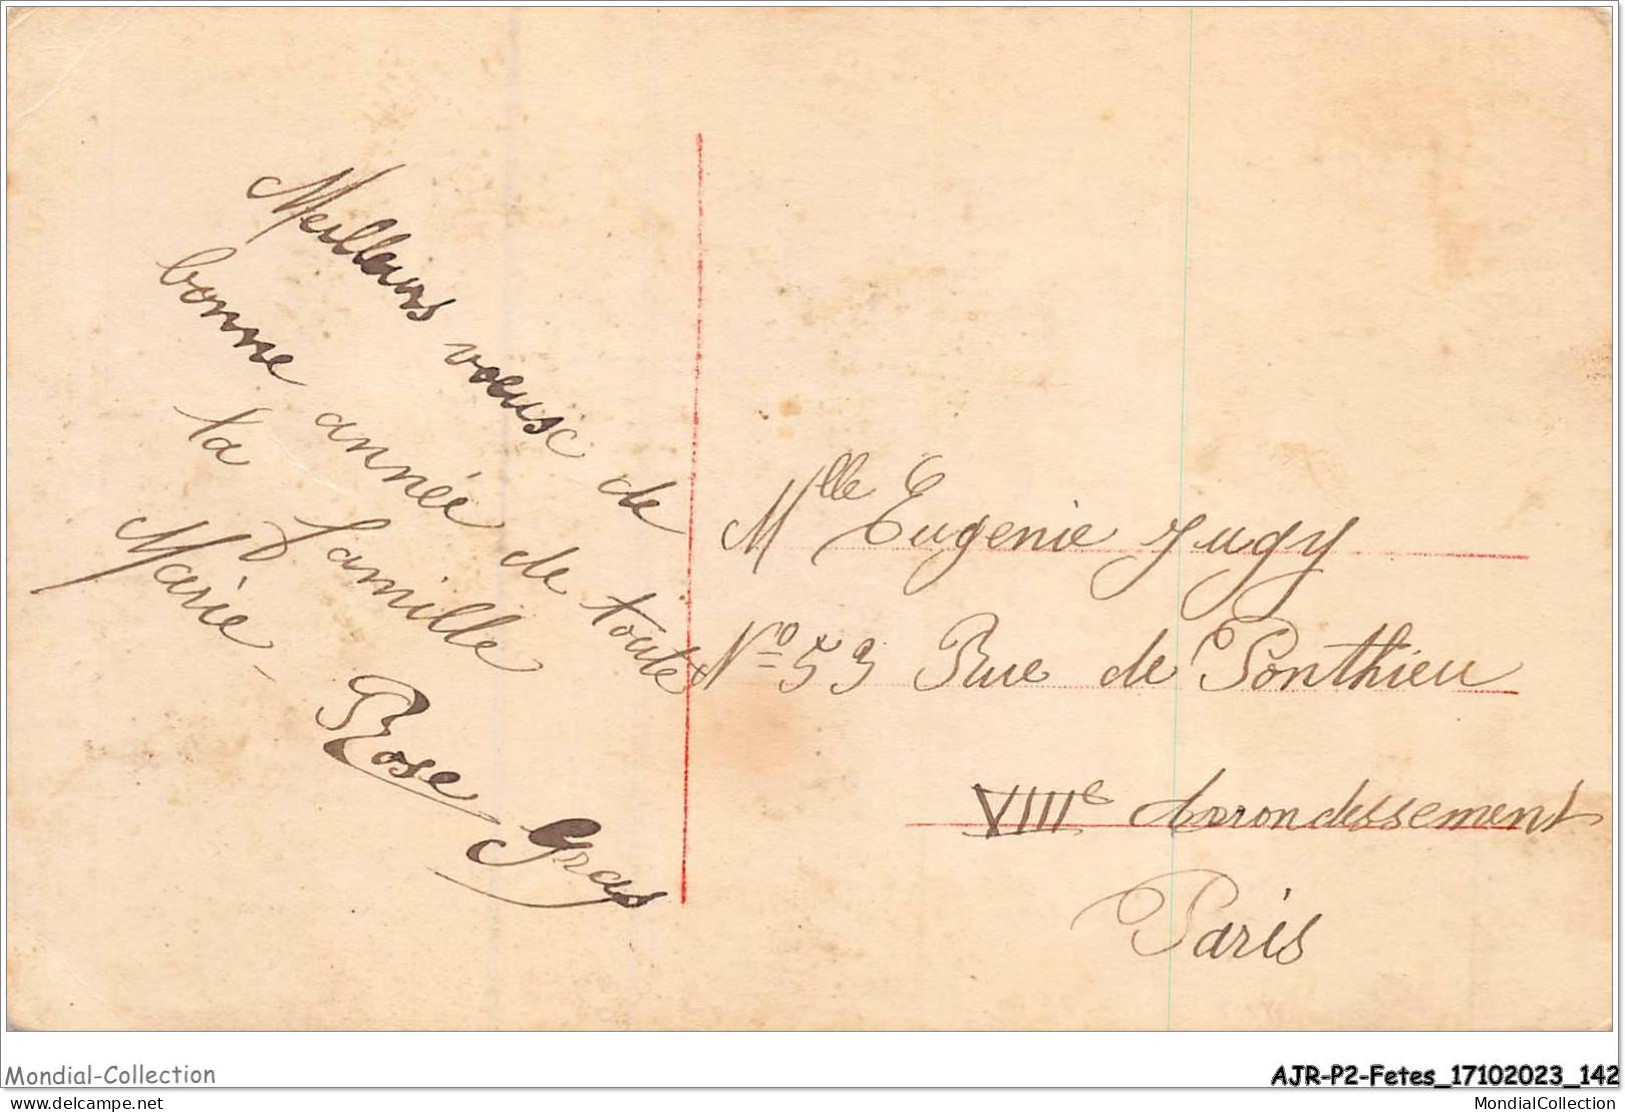 Meilleurs voeusc de
bonne année de toute
ta famille
Marie - Rose Gras
Mlle Eugenie Jugy
No 53 Rue de Ponthieu
VIIIe Arrondessement
Paris
Mondial-Collection
AJR-P2-Fetes_17102023_142
www.delcampe.net
MondialCollection